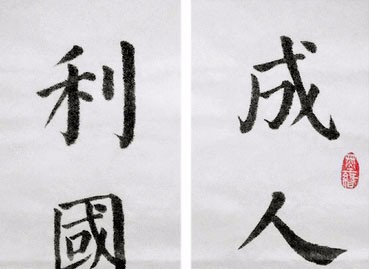 成人
利國